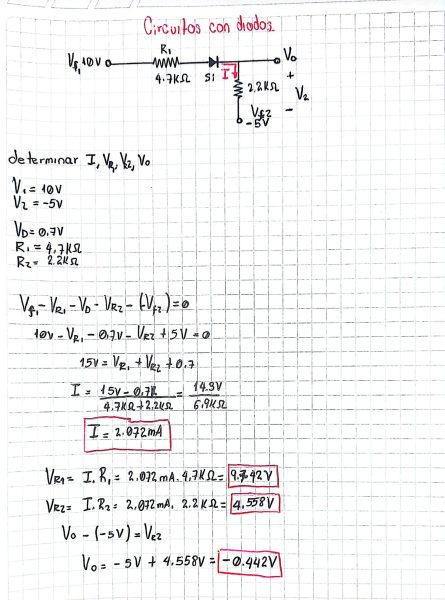 Circuitos con diodos.
Vf1 10V
R1
4.7KΩ
Si
I
Vo
+
2.2KΩ
V2
-
Vf2
-5V
determinar I, VR1, VR2, Vo
V1 = 10V
V2 = -5V
VD = 0.7V
R1 = 4.7KΩ
R2 = 2.2KΩ
Vf1 - VR1 - VD - VR2 - (-Vf2) = 0
10V - VR1 - 0.7V - VR2 + 5V = 0
15V = VR1 + VR2 + 0.7
I = 15V - 0.7V / 4.7KΩ + 2.2KΩ = 14.3V / 6.9KΩ
I = 2.072mA
VR1 = I. R1 = 2.072mA. 4.7KΩ = 9.742V
VR2 = I. R2 = 2.072mA. 2.2KΩ = 4.558V
Vo - (-5V) = VR2
Vo = -5V + 4.558V = -0.442V